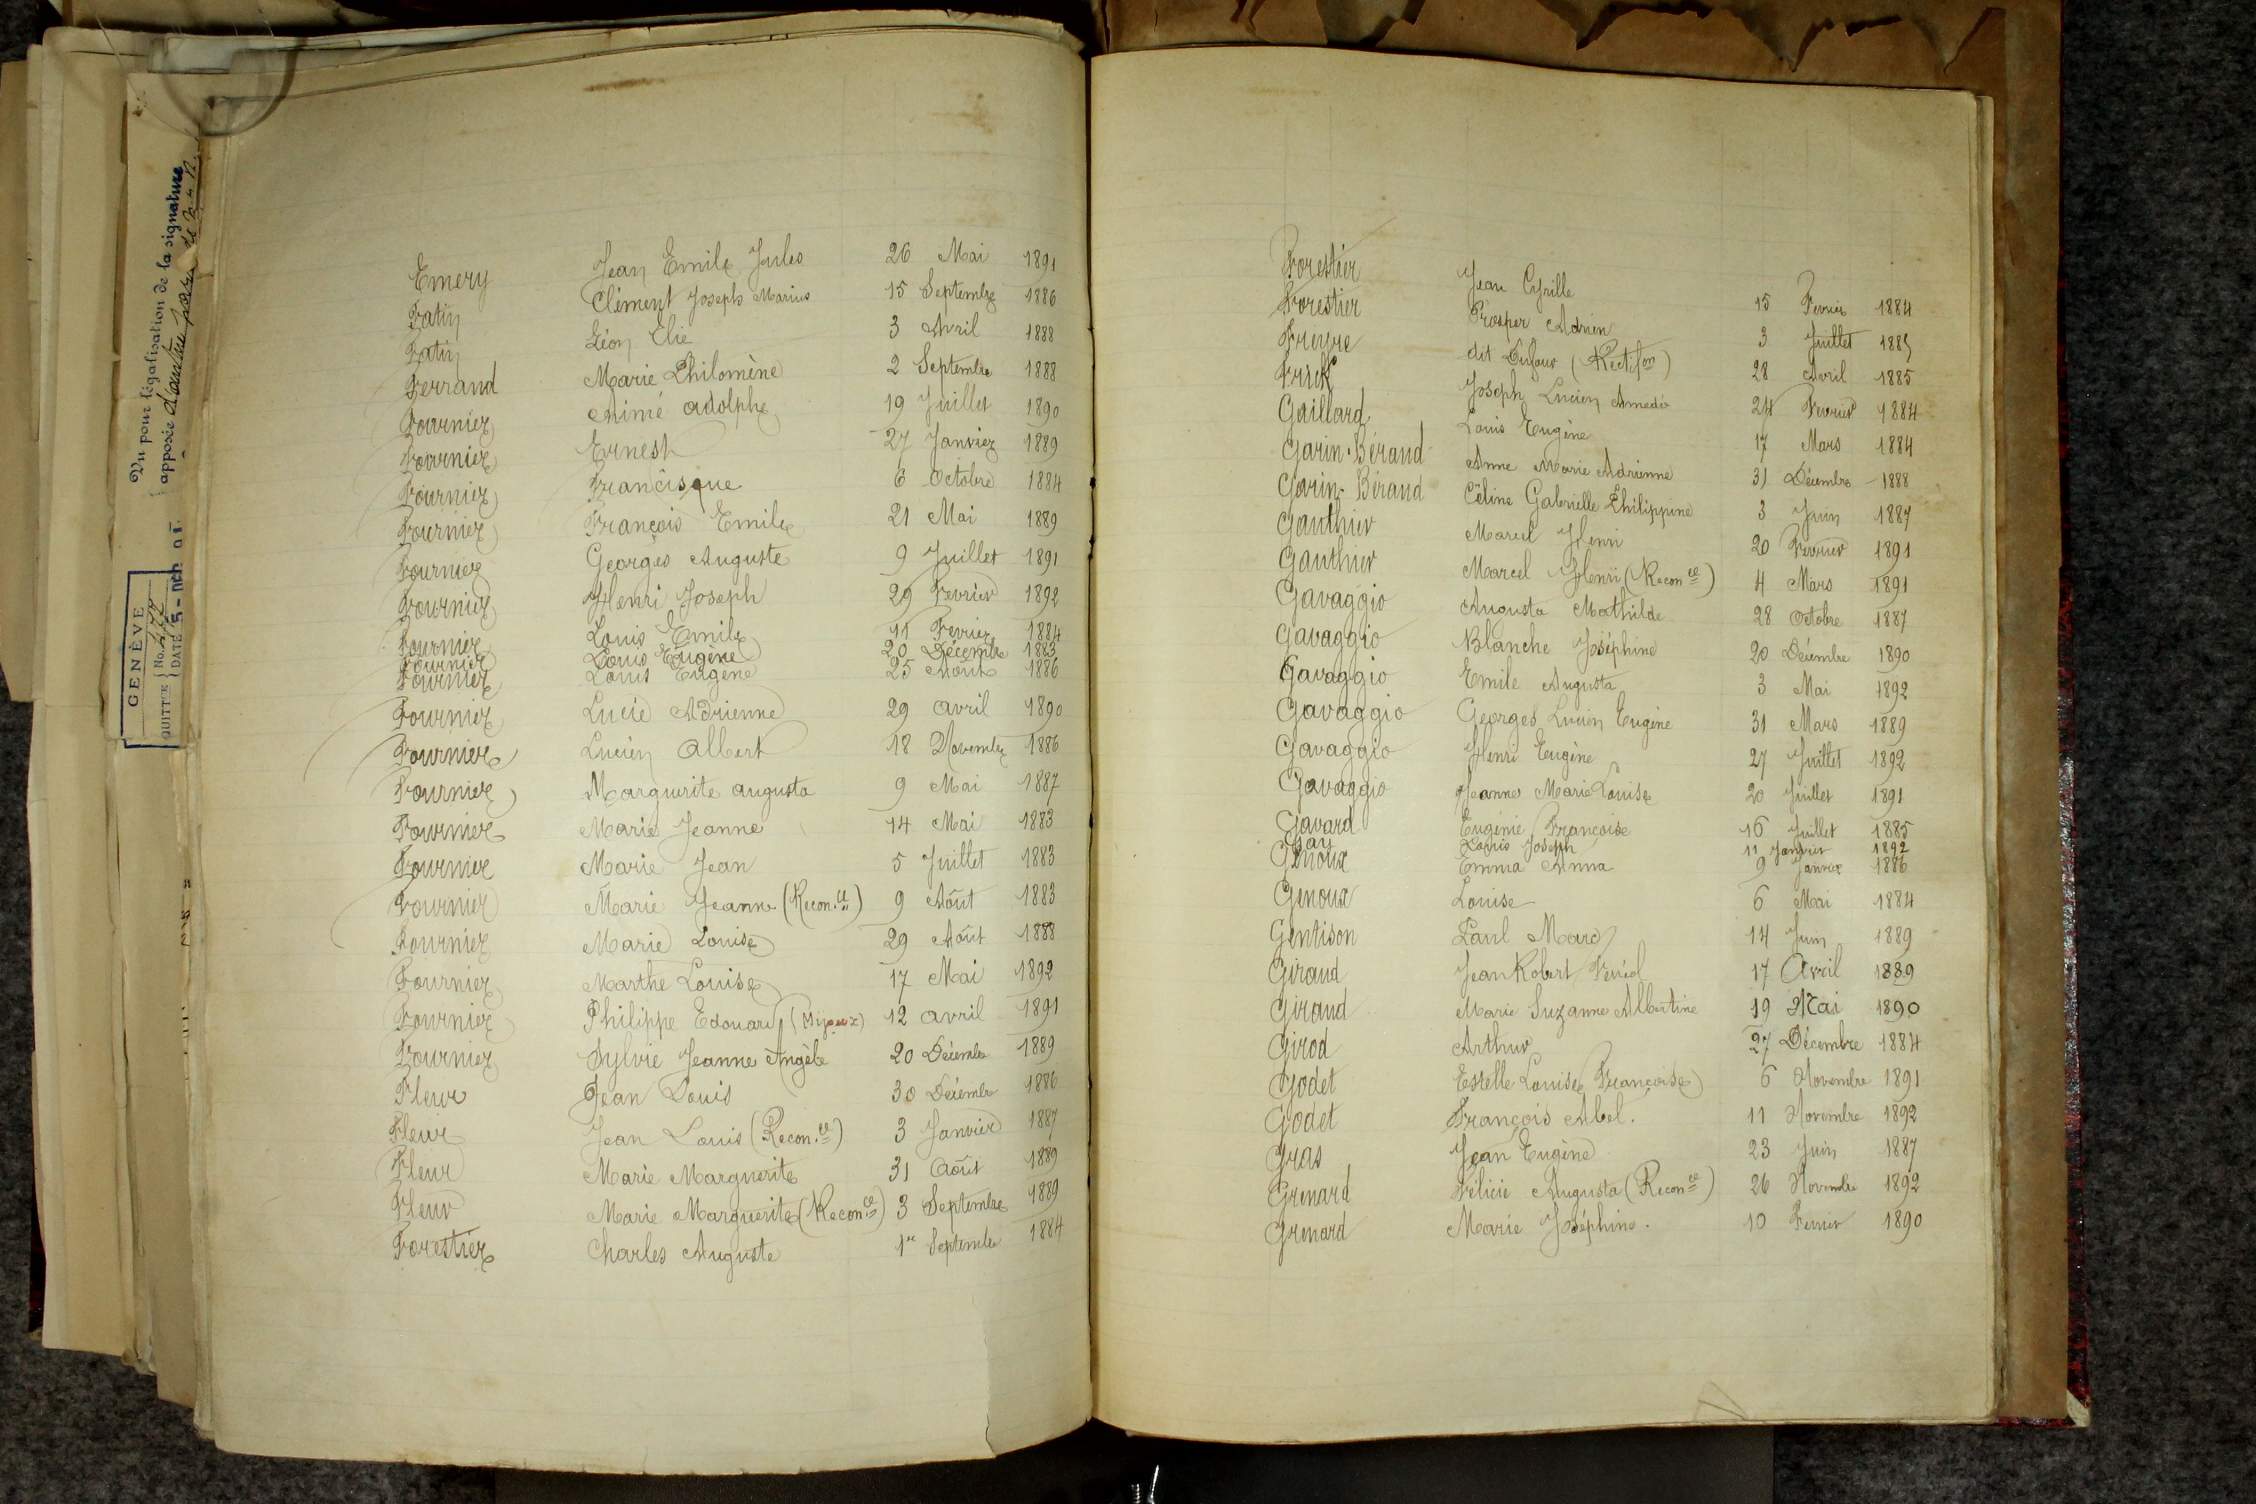 Vu pour légalisation de la signature
apposée d'autre part
GENÈVE
QUITTCE No.
DATE 5 - DÉC
Emery Jean Emile Jules 26 Mai 1891
Fatin Clément Joseph Marius 15 Septembre 1886
Fatin Léon Elie 3 Avril 1888
Ferrand Marie Philomène 2 Septembre 1888
Fournier Aimé Adolphe 19 Juillet 1890
Fournier Ernest 27 Janvier 1889
Fournier Francisque 6 Octobre 1884
Fournier François Emile 21 Mai 1889
Fournier Georges Auguste 9 Juillet 1891
Fournier Henri Joseph 29 Fevrier 1892
Fournier Louis Emile 11 Fevrier 1884
Fournier Louis Eugène 20 Décembre 1883
Fournier Louis Eugène 25 Août 1886
Fournier Lucie Adrienne 29 avril 1890
Fournier Lucien Albert 18 Novembre 1886
Fournier Marguerite augusta 9 Mai 1887
Fournier Marie Jeanne 14 Mai 1883
Fournier Marie Jean 5 Juillet 1883
Fournier Marie Jeanne (Recon.ce) 9 Août 1883
Fournier Marie Louise 29 Août 1888
Fournier Marthe Louise 17 Mai 1892
Fournier Philippe Edouard (Mijoux) 12 avril 1891
Fournier Sylvie Jeanne Angèle 20 Décembre 1889
Fleur Jean Louis 30 Décembre 1886
Fleur Jean Louis (Recon.ce) 3 Janvier 1887
Fleur Marie Marguerite 31 Août 1889
Fleur Marie Marguerite (Recon.ce) 3 Septembre 1889
Forestier Charles Auguste 1er Septembre 1884
Forestier Jean Cyrille 15 Fevrier 1884
Forestier Prosper Adrien 3 Juillet 1885
Freyre dit Dufour (Rectifon) 28 Avril 1885
Frick Joseph Lucien Amedée 24 Fevrier 1884
Gaillard Louis Eugène 17 Mars 1884
Garin-Béraud Anne Marie Adrienne 31 Décembre 1888
Garin-Béraud Céline Gabrielle Philippine 3 Juin 1887
Gauthier Marcel Henri 20 Fevrier 1891
Gauthier Marcel Henri (Reconce) 4 Mars 1891
Gavaggio Augusta Mathilde 28 Octobre 1887
Gavaggio Blanche Joséphine 20 Décembre 1890
Gavaggio Emile Augusta 3 Mai 1892
Gavaggio Georges Lucien Eugène 31 Mars 1889
Gavaggio Henri Eugène 27 Juillet 1892
Gavaggio Jeanne Marie Louise 20 Juillet 1891
Gavard Eugénie Françoise 16 Juillet 1885
Gay Louis Joseph 11 Janvier 1892
Genoux Emma Anna 9 Janvier 1886
Genoux Louise 6 Mai 1884
Gentison Paul Marc 14 Juin 1889
Giraud Jean Robert 17 Avril 1889
Giraud Marie Suzanne Albertine 19 Mai 1890
Girod Arthur 27 Décembre 1884
Godet Estelle Louise Françoise 6 Novembre 1891
Godet François Abel. 11 Novembre 1892
Gras Jean Eugène 23 Juin 1887
Grenard Félicie Augusta (Reconce) 26 Novembre 1892
Grenard Marie Joséphine. 10 Fevrier 1890